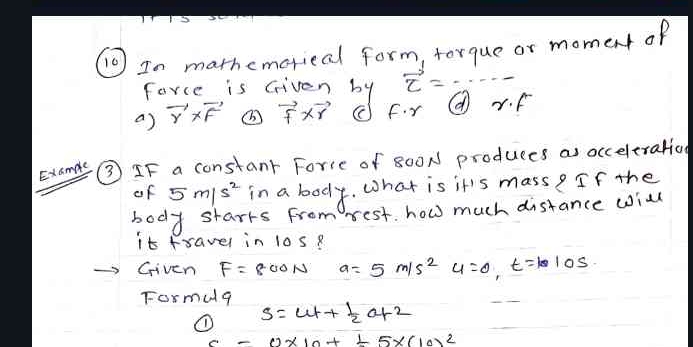 (10) In mathematical form, torque or moment of
force is Given by τ⃗ = ......
a) r⃗×F⃗ (b) F⃗×r⃗ (c) F.r (d) r.F
Example (3) IF a constant Force of 800N produces as acceleration
of 5 m/s² in a body. what is it's mass? If the
body starts from rest. how much distance will
it travel in 10 s?
→ Given F = 800N a = 5 m/s² u=0, t= 10s.
Formula
(1) S = ut + ½ at2
0×10 + ½ 5×(10)2